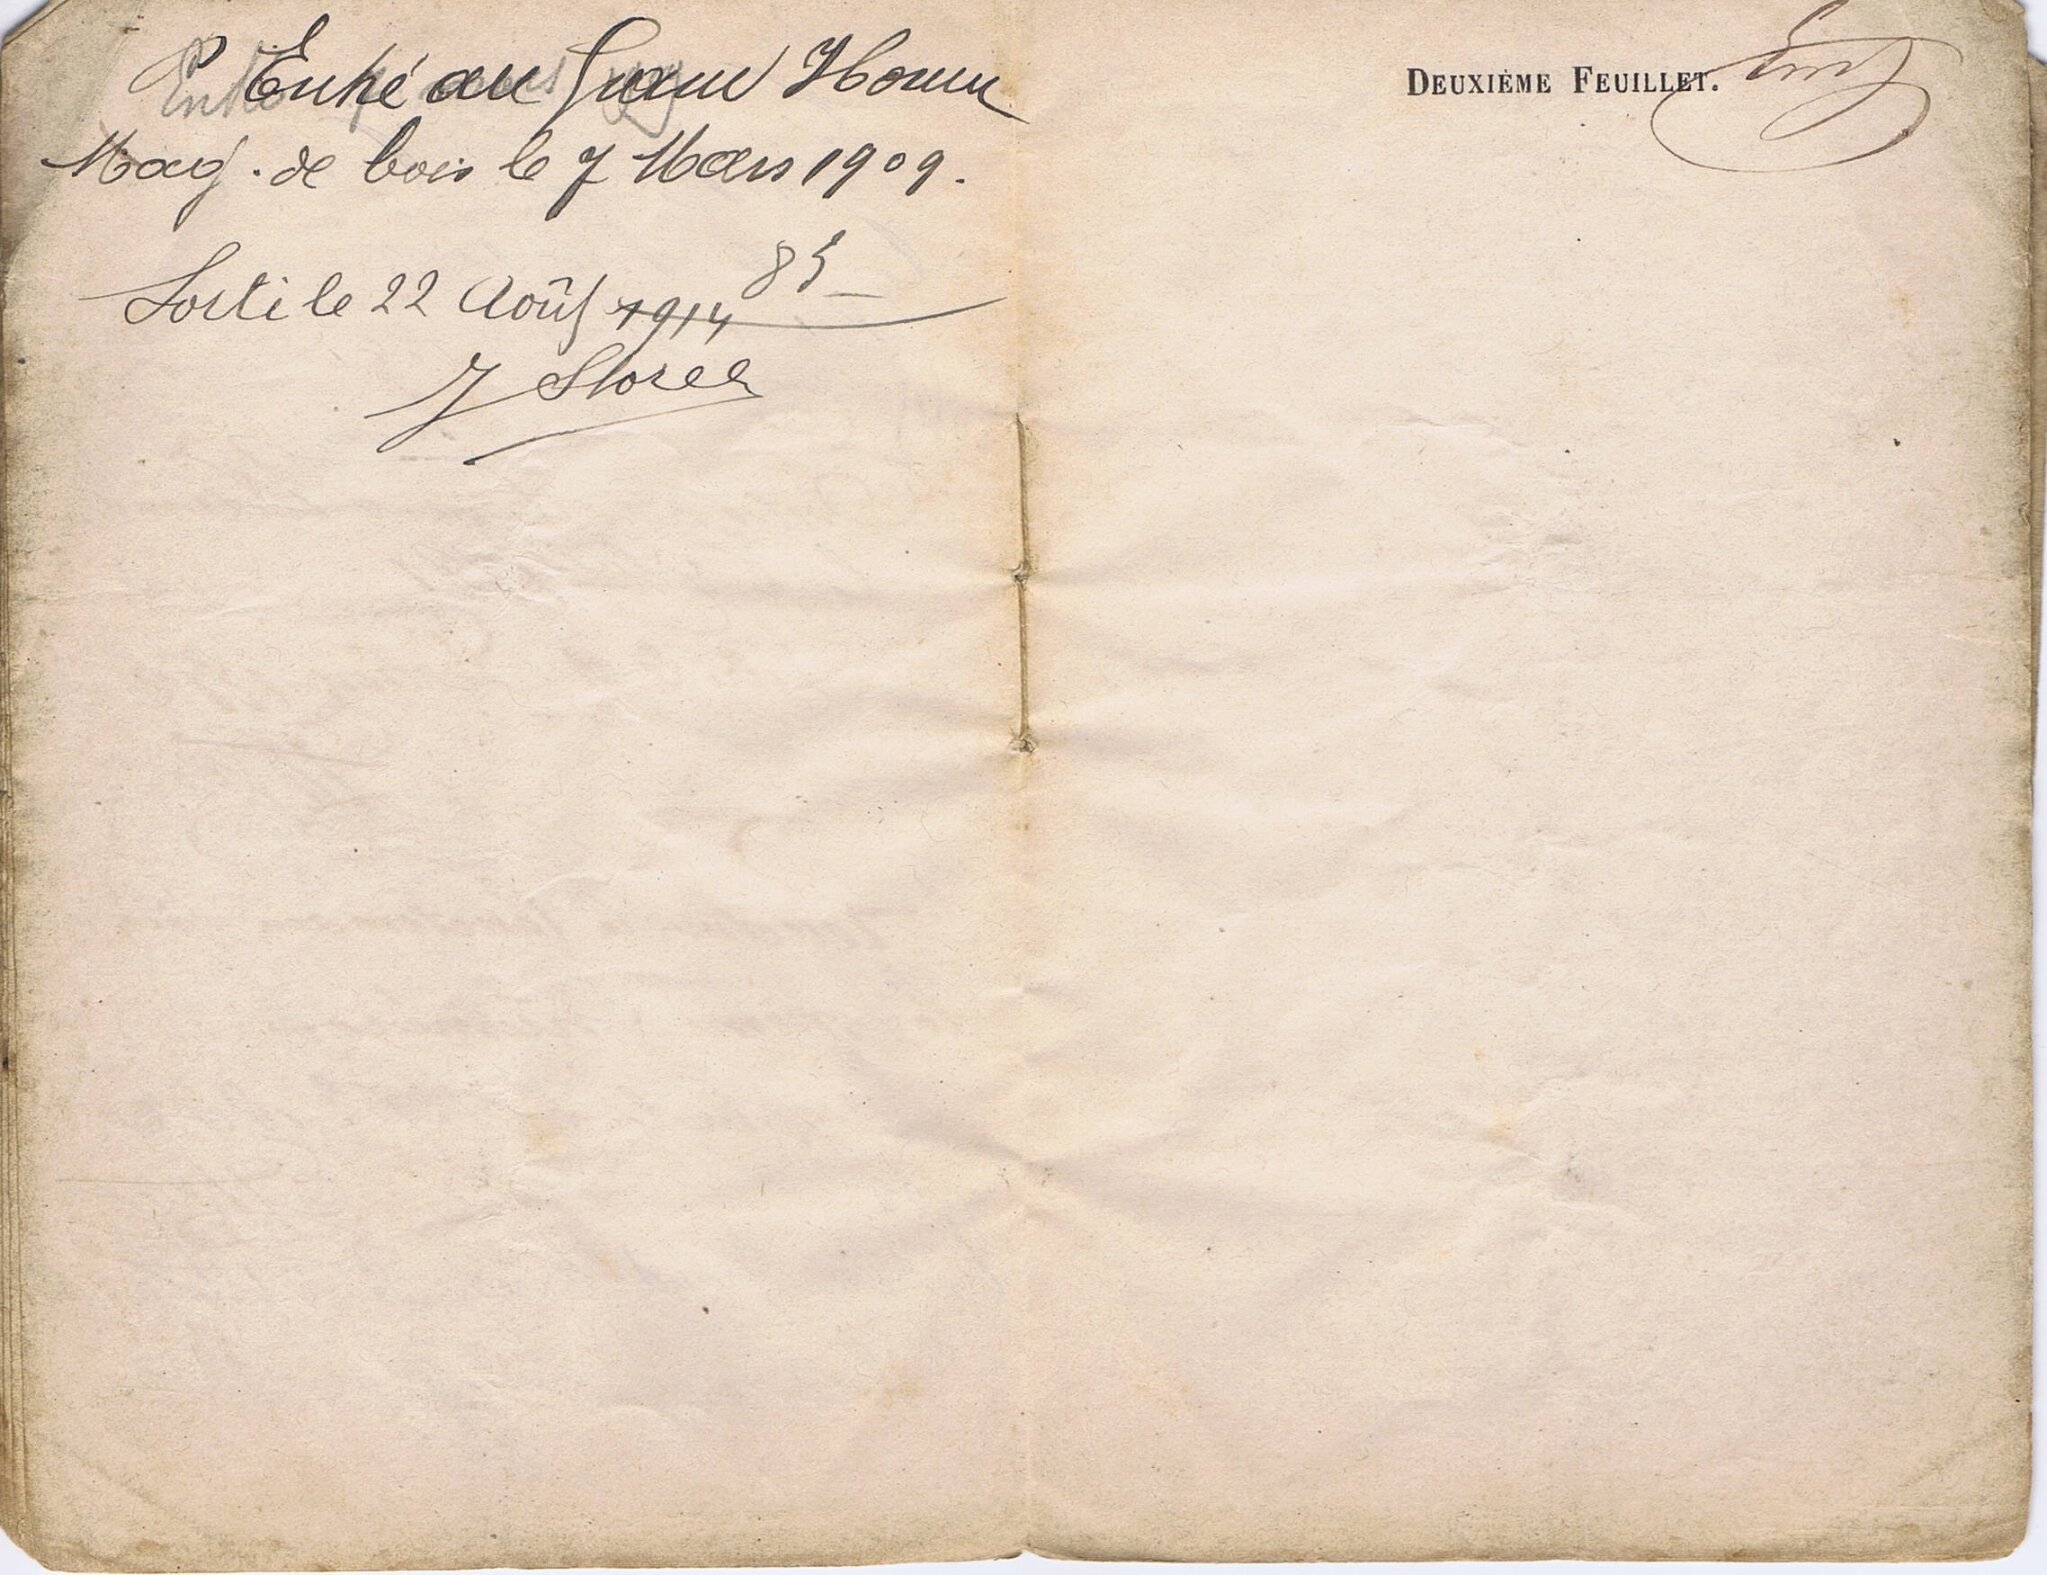 Entré au Grand Hornu
Mag. de bois le 7 Mars 1909.
Sorti le 22 Août 1914
85
J Storel
DEUXIÈME FEUILLET.